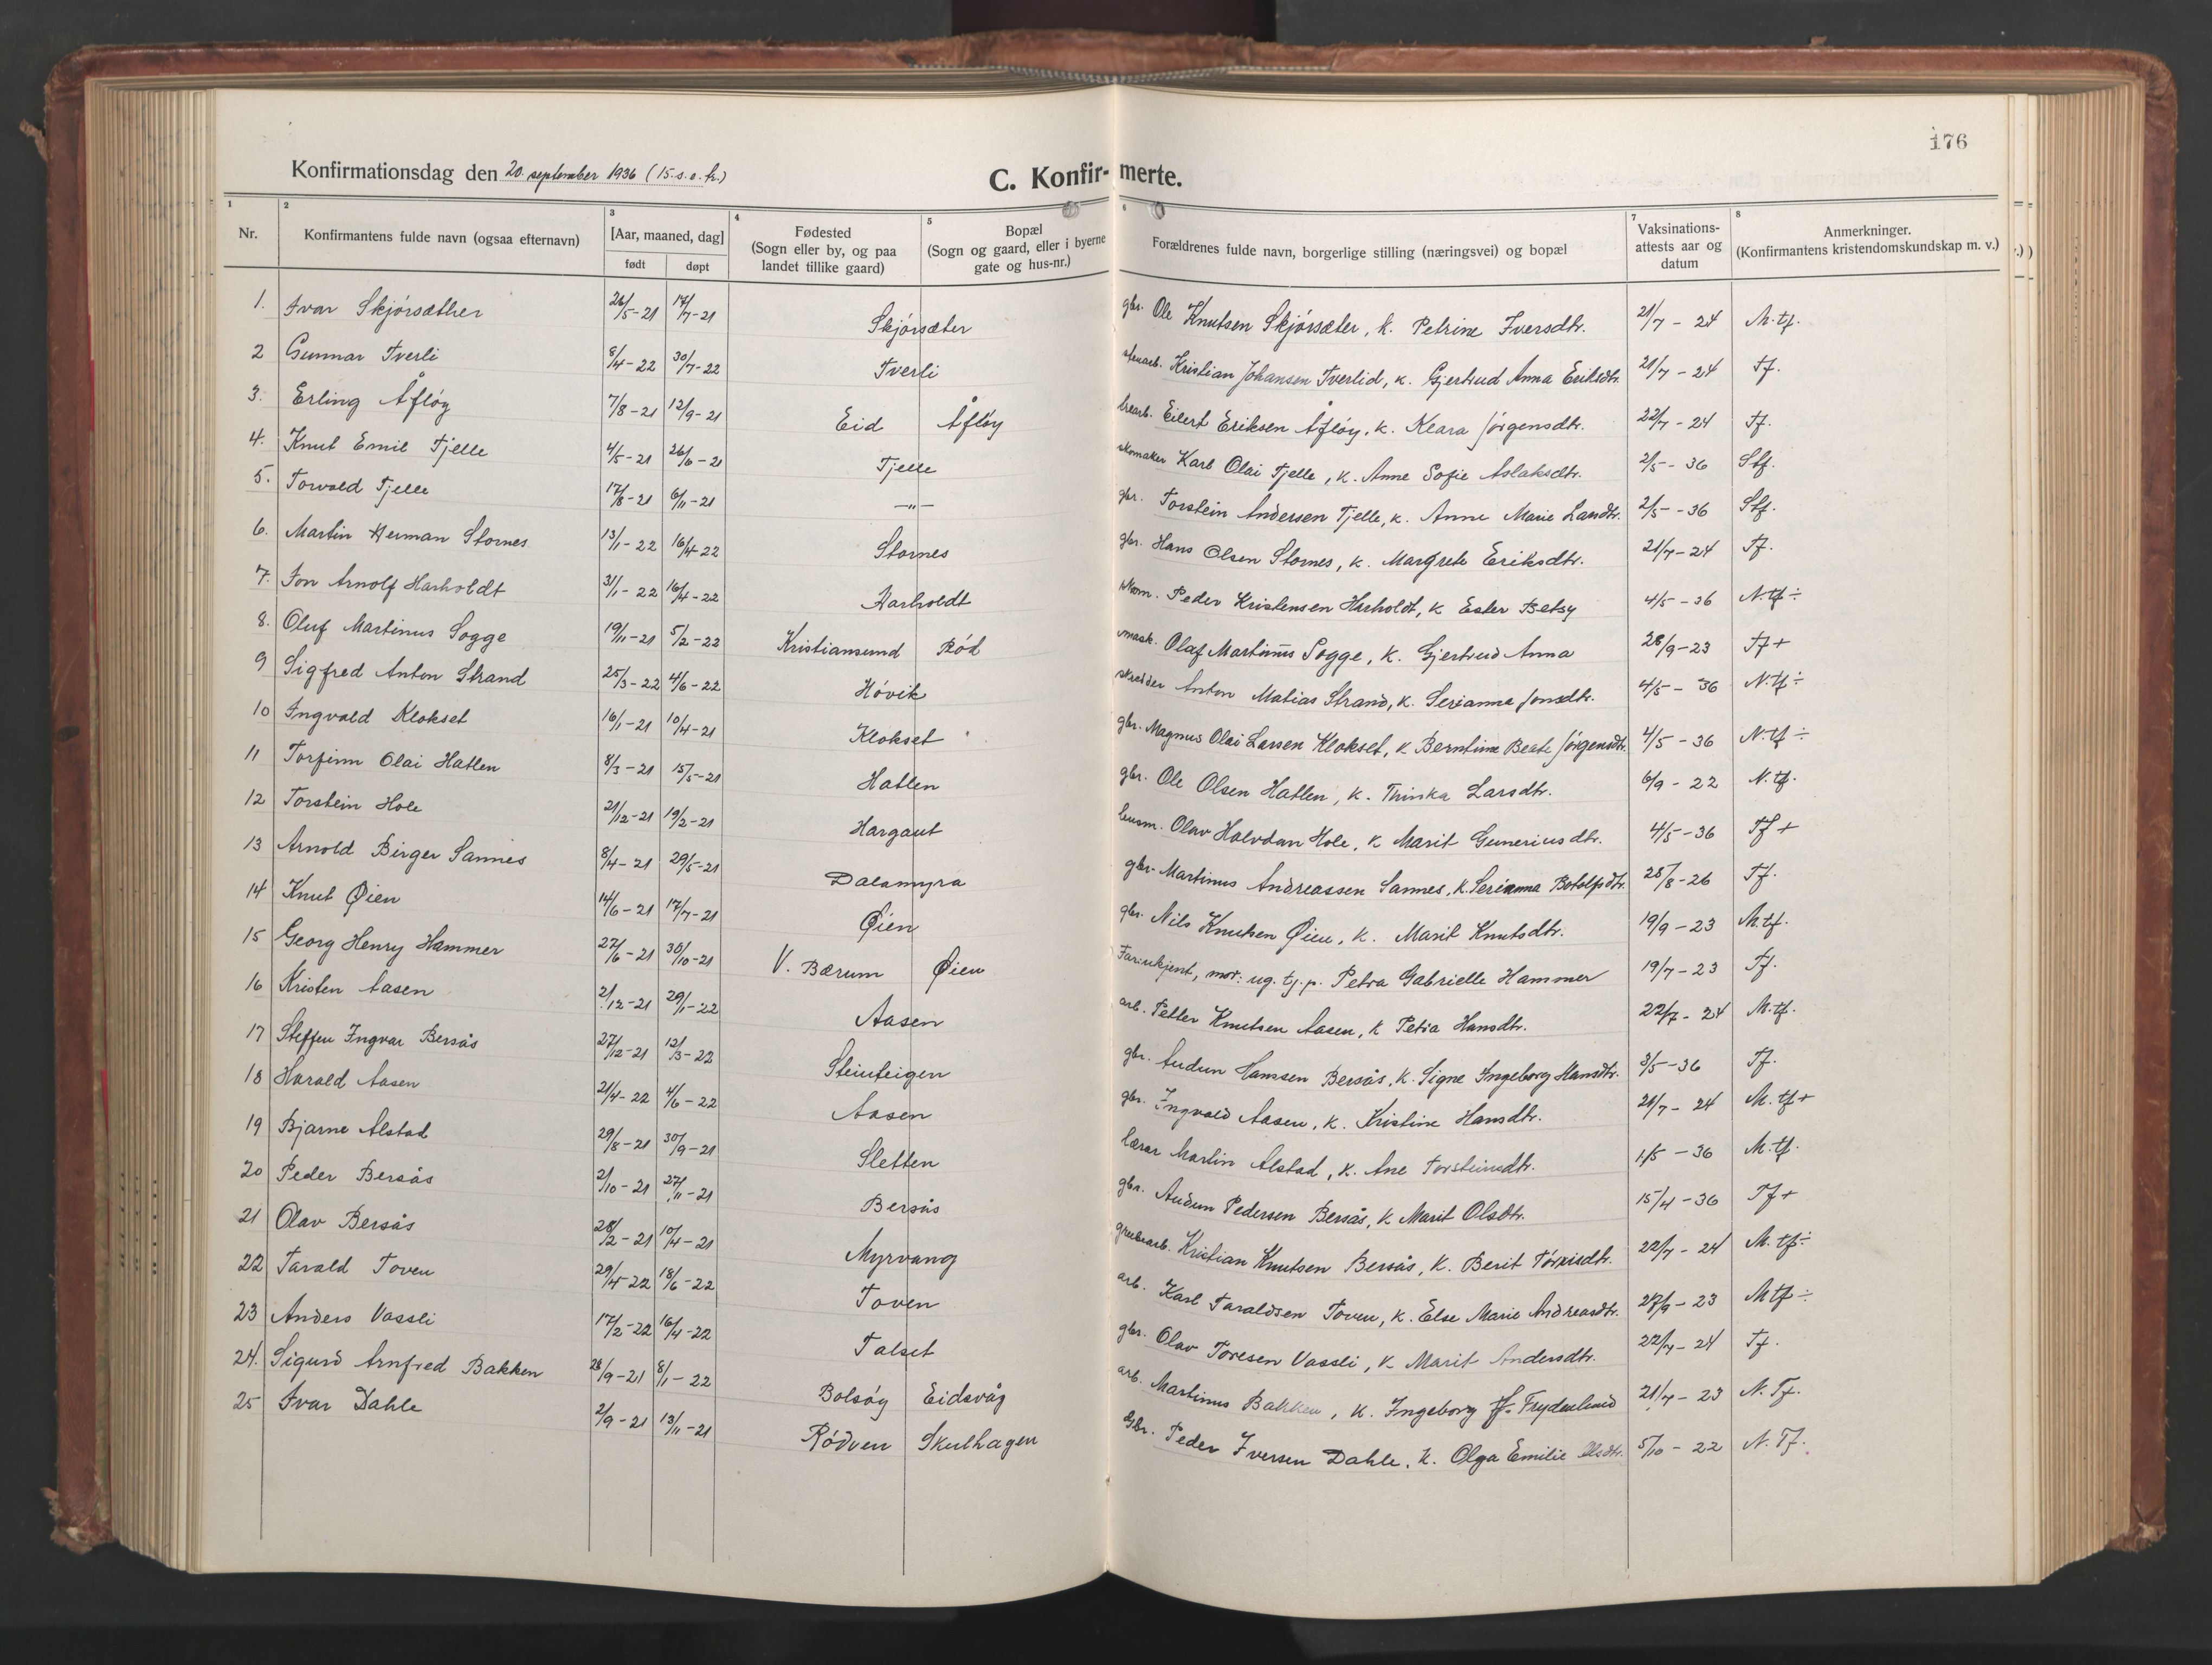 176
Konfirmationsdag den 20. september 1936 (15. s. e. tr.)
C. Konfirmerte.
1 2 3 4 5 6 7 8
Nr. | Konfirmantens fulde navn (ogsaa efternavn) | [Aar, maaned, dag] født døpt | Fødested (Sogn eller by, og paa landet tillike gaard) | Bopæl (Sogn og gaard, eller i byerne gate og hus-nr.) | Forældrenes fulde navn, borgerlige stilling (næringsvei) og bopæl | Vaksinations-attests aar og datum | Anmerkninger. (Konfirmantens kristendomskundskap m. v.)
1. Ivar Skjørsæther 26/5-21 17/7-21 Skjørsæter gbr. Ole Knutsen Skjørsæter, k. Petrine Iversdtr. 21/7 - 24 M.tf.
2 Gunnar Tverli 8/4-22 30/7-22 Tverli Kristian Johansen Tverlid, k. Gjertrud Anna Eriksdtr. 21/7 - 24 Tf.
3. Erling Åfløy 7/8-21 12/9-21 Eid Åfløy Eilert Eriksen Åfløy, k. Klara Jørgensdtr. 22/7 - 24 Tf.
4. Knut Emil Tjelle 4/5-21 26/6-21 Tjelle skomaker Karl Olai Tjelle, k. Anne Sofie Aslaksdtr. 2/5 - 36 Stf.
5. Torvald Tjelle 17/8-21 6/11-21 —"— gbr. Torstein Andersen Tjelle, k. Anne Marie Larsdtr. 2/5 - 36 Stf.
6. Martin Herman Stornes 13/1-22 16/4-22 Stornes gbr. Hans Olsen Stornes, k. Margrete Eriksdtr. 21/7-24 Tf.
7. Jon Arnolf Harholdt 31/1-22 16/4-22 Harholdt skom. Peder Kristensen Harholdt, k Ester Betsy 4/5-36 N.tf ÷
8. Oluf Martinus Sogge 19/11-21 5/2-22 Kristiansund Rød mask. Olaf Martinus Sogge, k. Gjertrud Anna 28/9-23 Tf +
9 Sigfred Anton Strand 25/3-22 4/6-22 Høvik skredder Anton Matias Strand, k. Serianna Jonsdtr. 4/5 - 36 N.tf ÷
10 Ingvald Klokset 16/1-21 10/4-21 Klokset gbr. Magnus Olai Larsen Klokset, k Berntine Beate Jørgensdtr. 4/5 - 36 N.tf ÷
11 Torfinn Olai Hatlen 8/3-21 15/5-21 Hatlen gbr. Ole Olsen Hatlen, k. Thinka Larsdtr. 6/9 - 22 N.tf.
12 Torstein Hole 21/12-21 19/2-21 Hargaut lensm. Olav Halvdan Hole, k Marit Gunneriusdtr. 4/5-36 Tf +
13 Arnold Birger Sannes 8/4-21 29/5-21 Dalamyra gbr. Martinus Andreassen Sannes, k. Serianna Botolfsdtr. 28/8-26 Tf.
14 Knut Øien 14/6-21 17/7-21 Øien gbr. Nils Knutsen Øien, k. Marit Knutsdtr. 19/9-23 M.tf.
15 Georg Henry Hammer 27/6-21 30/10-21 V. Bærum Øien Far: ukjent, mor: ug. tj.p. Petra Gabrielle Hammer 19/7-23 Tf.
16 Kristen Aasen 2/12-21 29/1-22 Aasen arb. Petter Knutsen Aasen, k Petra Hansdtr. 22/7-24 M.tf.
17 Steffen Ingvar Bersås 27/12-21 12/3-22 Steinteigen gbr. Audun Hansen Bersås, k. Signe Ingeborg Hansdtr. 3/5-36 Tf.
18 Harald Aasen 21/4-22 4/6-22 Aasen gbr. Ingvald Aasen, k. Kristine Hansdtr. 21/7- 24 M.tf+
19 Bjarne Alstad 29/8-21 30/9-21 Sletten lærer Martin Alstad, k. Ane Torsteinsdtr. 1/5 - 36 M.tf.
20 Peder Bersås 2/10-21 27/11-21 Bersås gbr. Audun Pedersen Bersås, k Marit Olsdtr. 15/4-36 Tf+
21 Olav Bersås 28/2-21 10/4-21 Myrvang grubearb. Kristian Knutsen Bersås, k. Berit Tørrisdtr. 22/7- 24 M.tf÷
22 Tarald Toven 29/4-22 18/6-22 Toven arb. Karl Taraldsen Toven, k. Else Marie Andreasdtr. 27/9 - 23 Mtf ÷
23 Anders Vassli 17/2-22 16/4-22 Talset gbr. Olav Toresen Vassli, k Marit Andersdtr. 22/7-24 Tf.
24. Sigurd Arnfred Bakken 26/9-21 8/1-22 Bolsøy Eidsvåg arb. Martinus Bakken, k. Ingeborg f. Frydenlund 21/7-23 N.Tf.
25 Ivar Dahle 2/9-21 13/11-21 Rødven Skulhagen Gbr. Peder Iversen Dahle, k. Olga Emilie Olsdtr. 5/10 - 22 N.Tf.